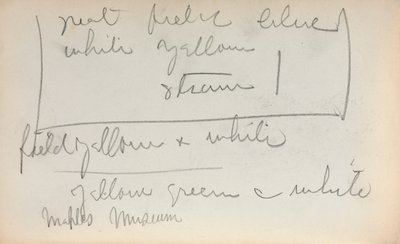 neat field blue
white yellow
stream
field yellow & white
yellow green & white
Naples Museum